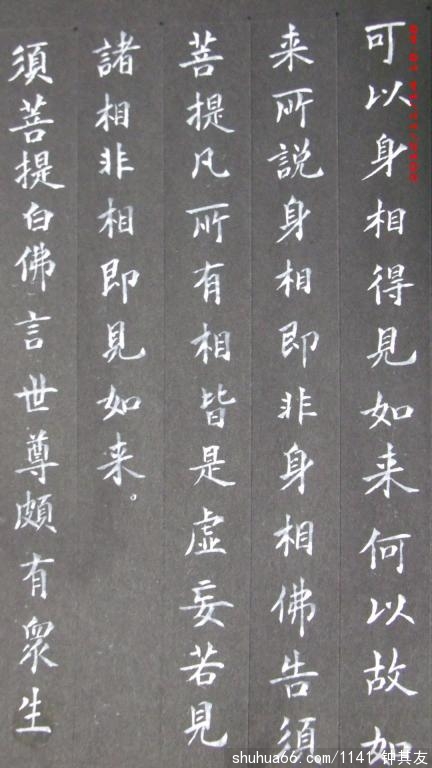 可以身相得見如来何以故如
来所說身相即非身相佛告須
菩提凡所有相皆是虛妄若見
諸相非相即見如来。
須菩提白佛言世尊頗有眾生
shuhua66.com/1141 钟其友